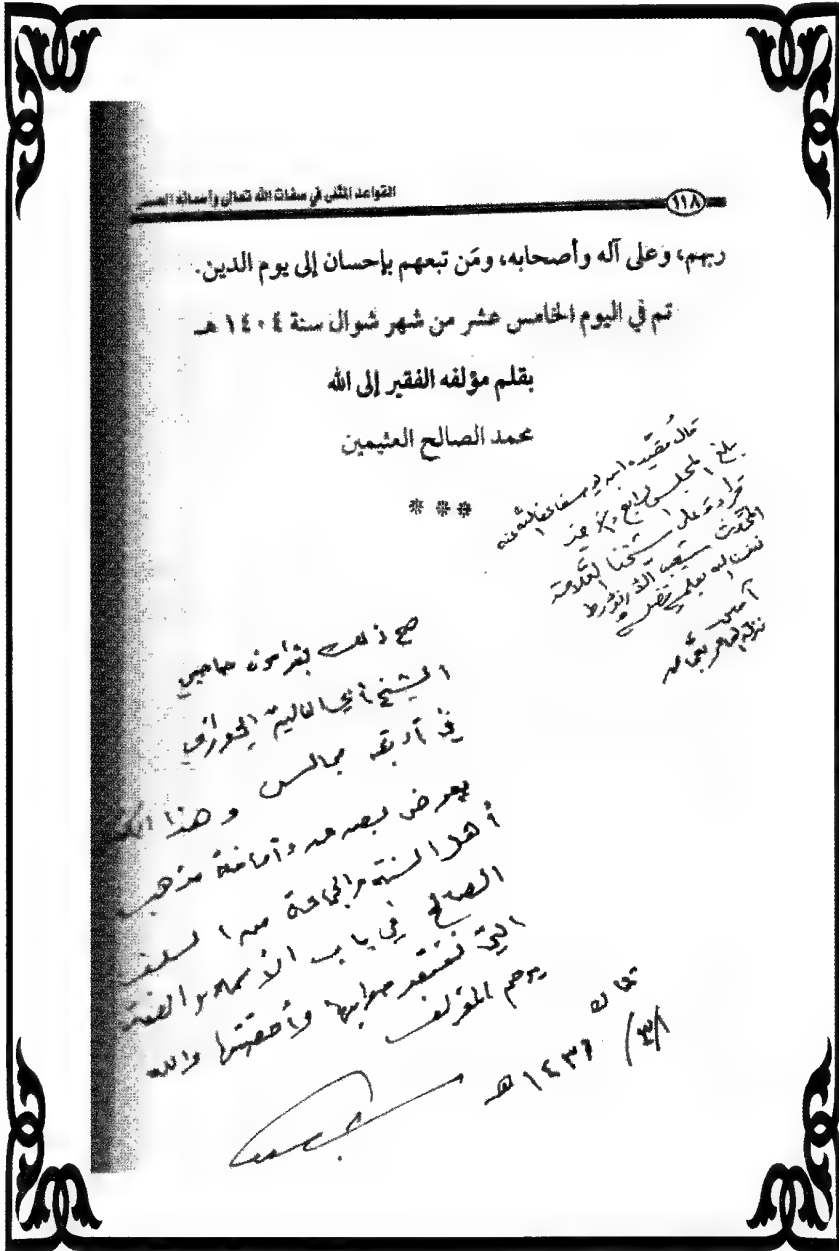 ١١٨
القواعد المثلى في صفات الله تعالى وأسمائه الحسنى
ربهم، وعلى آله وأصحابه، ومَن تبعهم بإحسان إلى يوم الدين.
تم في اليوم الخامس عشر من شهر شوال سنة ١٤٠٤ هـ
بقلم مؤلفه الفقير إلى الله
محمد الصالح العثيمين
***
قال مُقيّده
بلغ
قراءة على شيخنا العلامة
المحدث شعيب الأرنؤوط
نفعنا الله بعلمه
آمين
صح ذلك بقراءة صاحبي
الشيخ أبي
في أربعة مجالس وهذا الكتاب
يعرض بصدق وأمانة مذهب
أهل السنة والجماعة من السلف
الصالح في باب الأسماء والصفات
التي نعتقد صوابها وأحقيتها والله
تعالى يرحم المؤلف
١٤٣٦ هـ